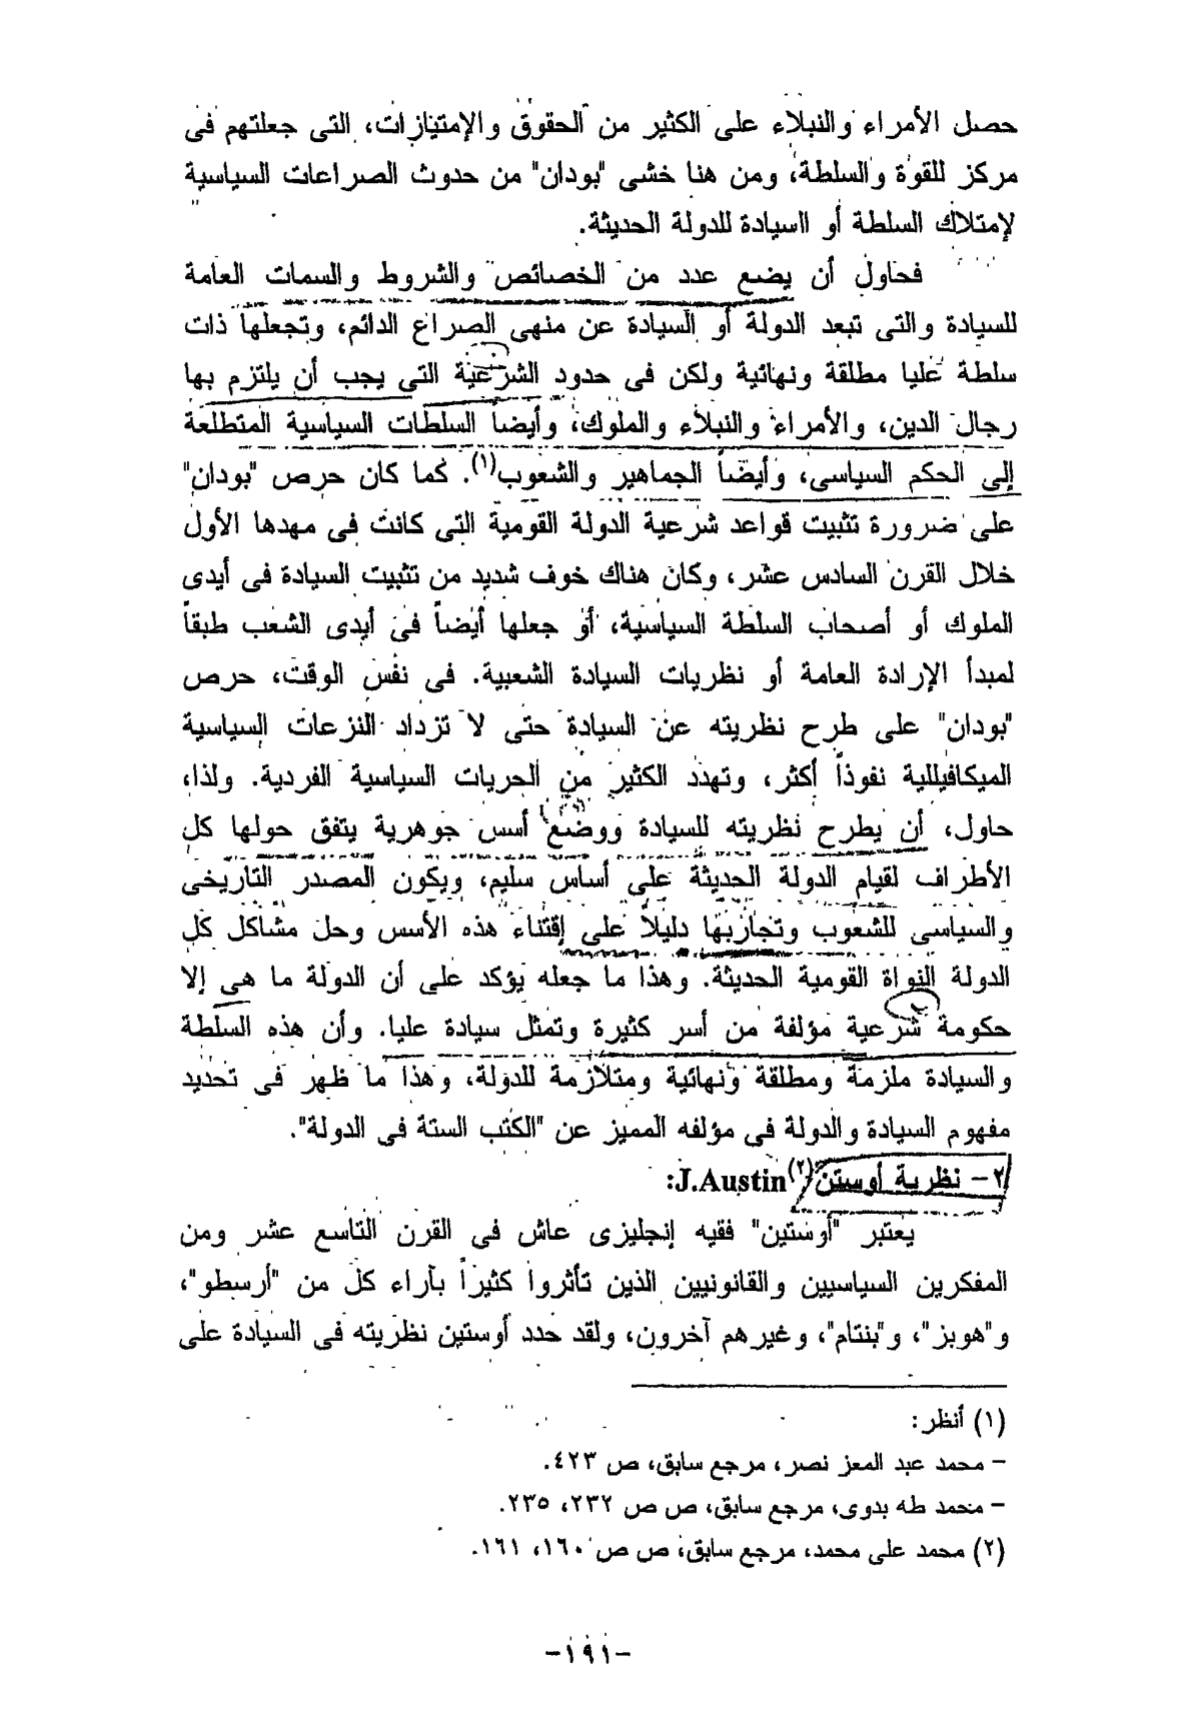 حصل الأمراء والنبلاء على الكثير من الحقوق والإمتيازات، التى جعلتهم فى
مركز للقوة والسلطة، ومن هنا خشى "بودان" من حدوث الصراعات السياسية
لإمتلاك السلطة أو السيادة للدولة الحديثة.
فحاول أن يضع عدد من الخصائص والشروط والسمات العامة
للسيادة والتى تبعد الدولة أو السيادة عن منهى الصراع الدائم، وتجعلها ذات
سلطة عليا مطلقة ونهائية ولكن فى حدود الشرعية التى يجب أن يلتزم بها
رجال الدين، والأمراء والنبلاء والملوك، وأيضاً السلطات السياسية المتطلعة
إلى الحكم السياسى، وأيضاً الجماهير والشعوب(١). كما كان حرص "بودان"
على ضرورة تثبيت قواعد شرعية الدولة القومية التى كانت فى مهدها الأول
خلال القرن السادس عشر، وكان هناك خوف شديد من تثبيت السيادة فى أيدى
الملوك أو أصحاب السلطة السياسية، أو جعلها أيضاً فى أيدى الشعب طبقاً
لمبدأ الإرادة العامة أو نظريات السيادة الشعبية. فى نفس الوقت، حرص
"بودان" على طرح نظريته عن السيادة حتى لا تزداد النزعات السياسية
الميكافيللية نفوذاً أكثر، وتهدد الكثير من الحريات السياسية الفردية. ولذا،
حاول، أن يطرح نظريته للسيادة ووضع أسس جوهرية يتفق حولها كل
الأطراف لقيام الدولة الحديثة على أساس سليم، ويكون المصدر التاريخى
والسياسى للشعوب وتجاربها دليلاً على إقتناء هذه الأسس وحل مشاكل كل
الدولة النواة القومية الحديثة. وهذا ما جعله يؤكد على أن الدولة ما هى إلا
حكومة شرعية مؤلفة من أسر كثيرة وتمثل سيادة عليا. وأن هذه السلطة
والسيادة ملزمة ومطلقة ونهائية ومتلازمة للدولة، وهذا ما ظهر فى تحديد
مفهوم السيادة والدولة فى مؤلفه المميز عن "الكتب الستة فى الدولة".
٢- نظرية أوستن(٢) J.Austin:
يعتبر "أوستين" فقيه إنجليزى عاش فى القرن التاسع عشر ومن
المفكرين السياسيين والقانونيين الذين تأثروا كثيراً بآراء كل من "أرسطو"،
و"هوبز"، و"بنتام"، وغيرهم آخرون، ولقد حدد أوستين نظريته فى السيادة على
(١) أنظر:
- محمد عبد المعز نصر، مرجع سابق، ص ٤٢٣.
- محمد طه بدوى، مرجع سابق، ص ص ٢٣٢، ٢٣٥.
(٢) محمد على محمد، مرجع سابق، ص ص ١٦٠، ١٦١.
-١٩١-